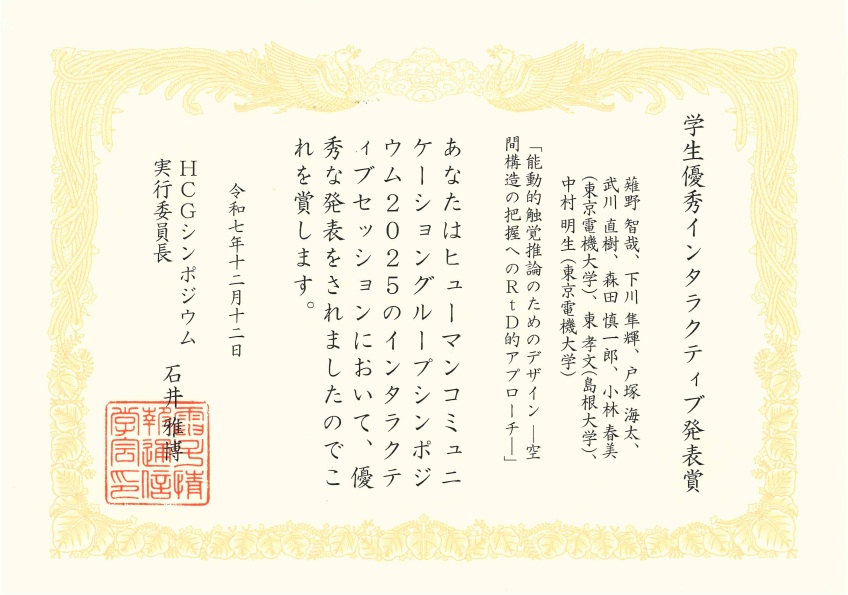 学生優秀インタラクティブ発表賞
薙野 智哉、下川 隼輝、戸塚 海太、
武川 直樹、森田 慎一郎、小林 春美
(東京電機大学)、東 孝文(島根大学)、
中村 明生(東京電機大学)
「能動的触覚推論のためのデザイン ―空
間構造の把握へのRtD的アプローチ―」
あなたはヒューマンコミュニ
ケーショングループシンポジ
ウム2025のインタラクテ
ィブセッションにおいて、優
秀な発表をされましたのでこ
れを賞します。
令和七年十二月十二日
HCGシンポジウム
実行委員長
石井 雅博
電子情
報通信
学会印